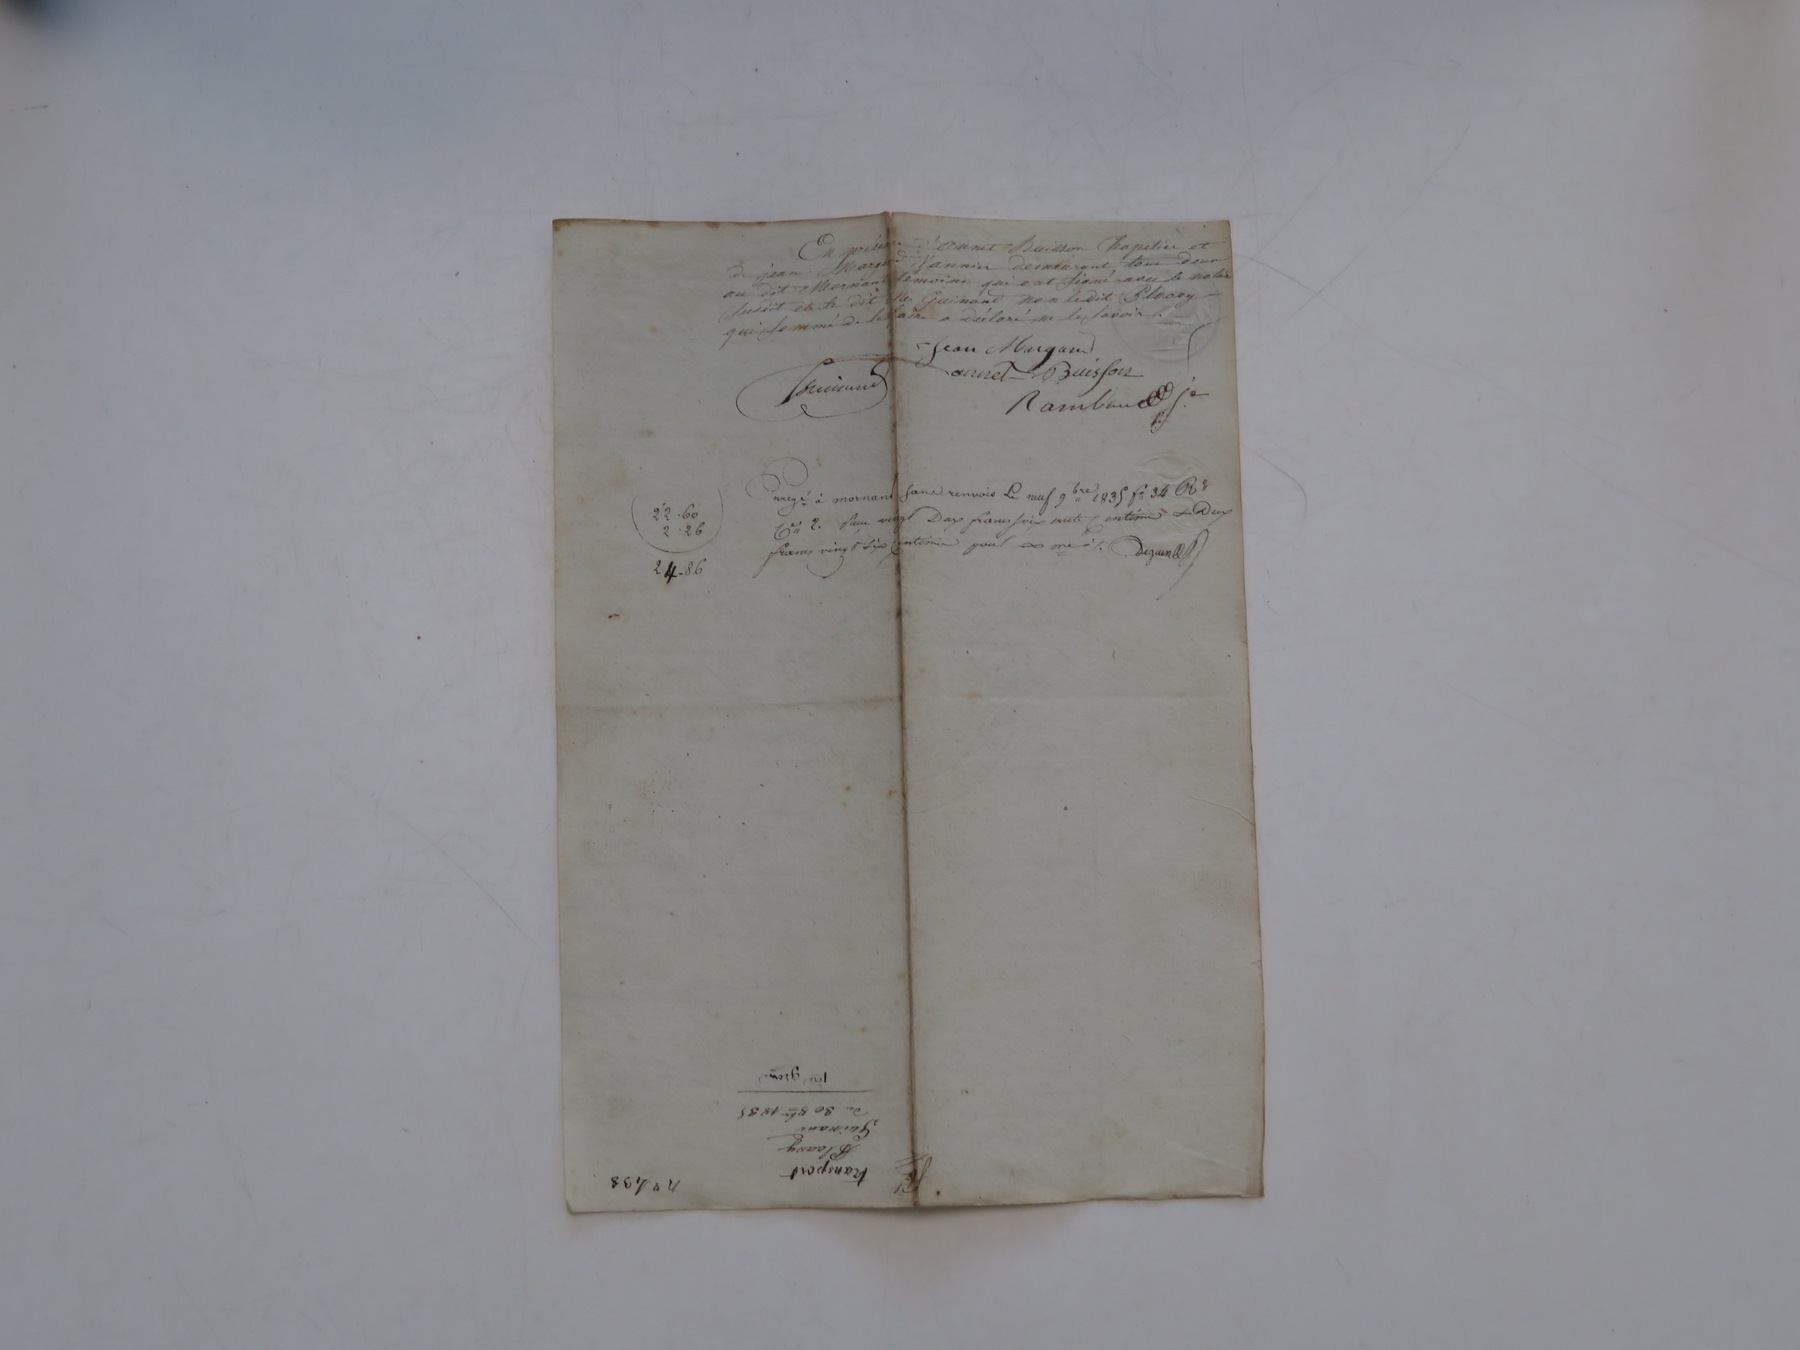 En présence d'annet Buisson Chapelier et
de jean Margand Vannier demeurant tous deux
au dit Mornant témoins qui ont signé avec le notaire
susdit et le dit Guinand non ledit Pleasy
qui sommé de le faire a déclaré ne le savoir.
Jean Margand
annet Buisson
Guinand
Rambaud
Enregé à mornant sans renvois Le neuf 9bre 1835 fo 34 Ro
Con 2. Reçu vingt Deux francs soix ante centimes & Deux
francs vingt six centimes pour
22-60
2-26
24-86
No 438
transport
Pleasy
à
Guinand
du 30 8bre 1835
1ère grosse